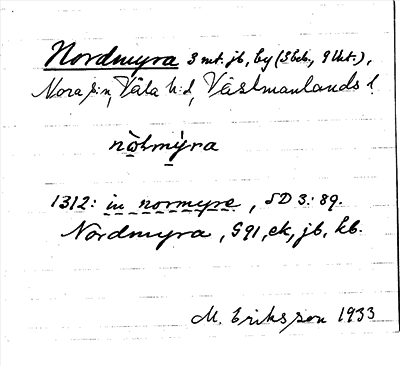 Nordmyra 3 mt. jb, by (3 beb., 9 lht.),
Nora sn, Våla hd, Västmanlands l.
nòlmýra
1312: in normyre, SD 3: 89.
Nordmyra, G 91, ek, jb, kb.
M. Eriksson 1933